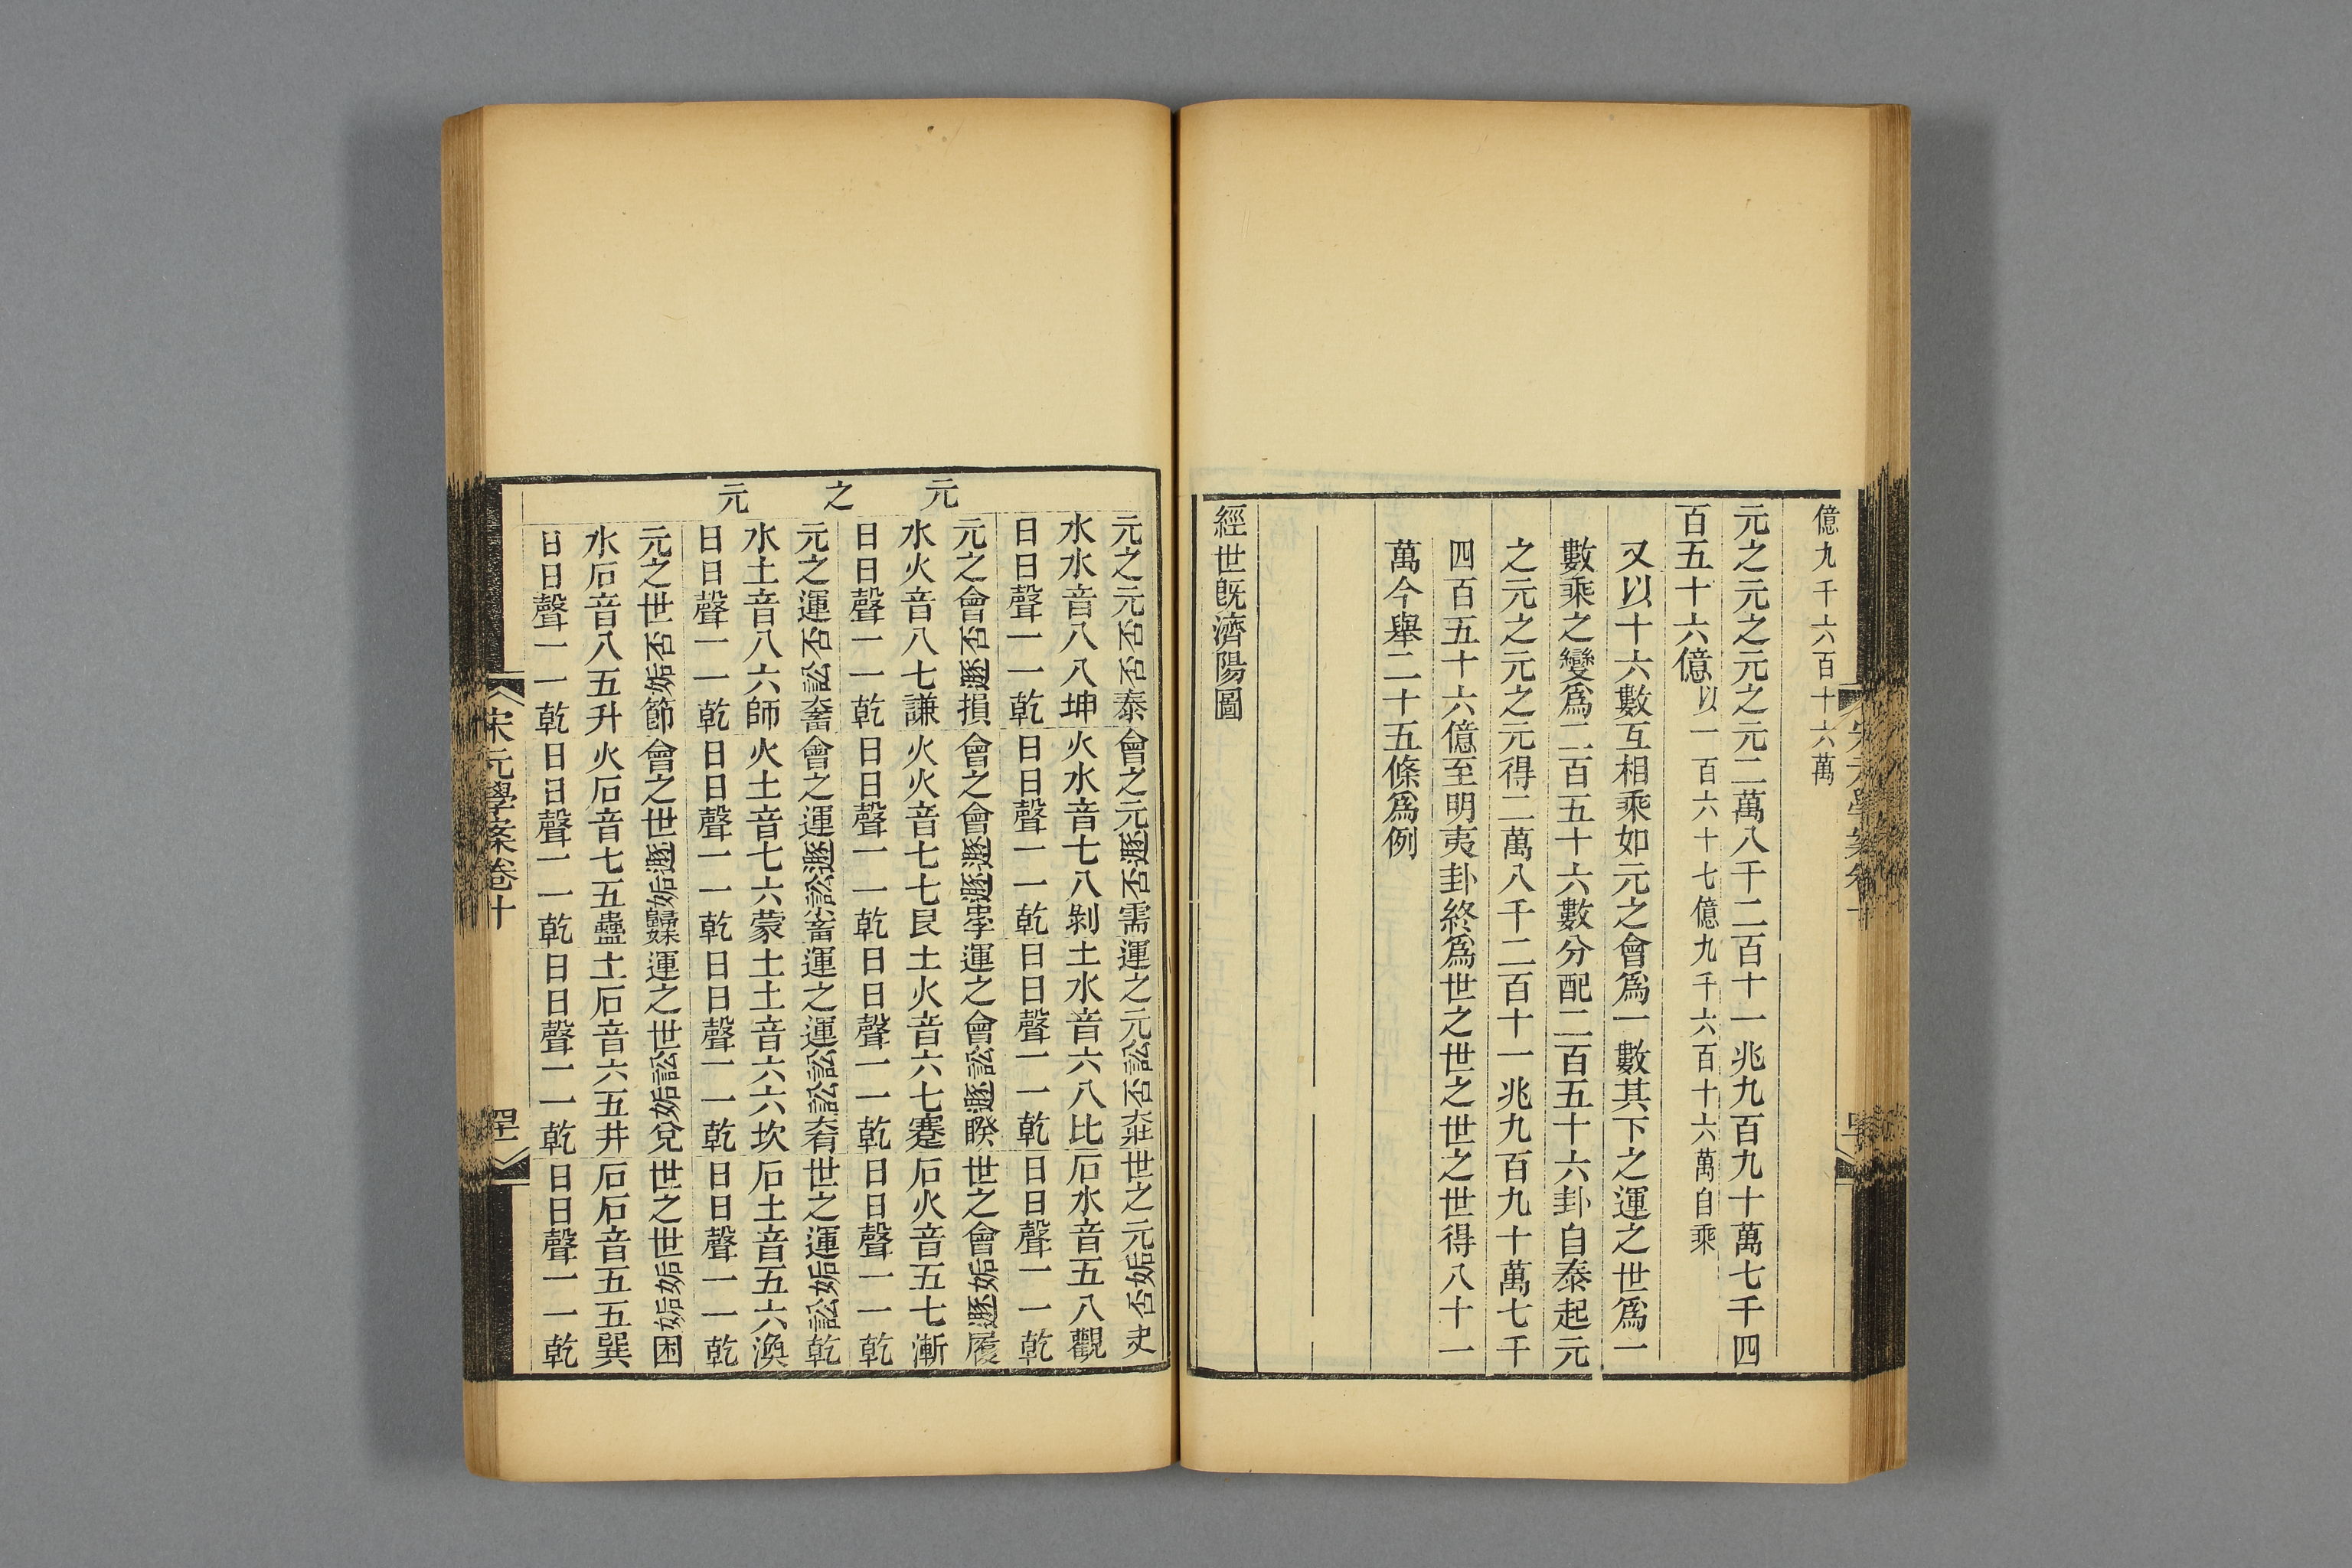 億九千六百十六萬
元之元之元之元二萬八千二百十一兆九百九十萬七千四
百五十六億以一百六十七億九千六百十六萬自乘
又以十六數互相乘如元之會爲一數其下之運之世爲一
數乘之變爲二百五十六數分配二百五十六卦自泰起元
之元之元之元得二萬八千二百十一兆九百九十萬七千
四百五十六億至明夷卦終爲世之世之世之世得八十一
萬今舉二十五條爲例
經世旣濟陽圖
元之元
元之元否否泰會之元遯否需運之元訟否大壯世之元姤否
水水音八八坤火水音七八剝土水音六八比石水音五八觀
日日聲一一乾日日聲一一乾日日聲一一乾日日聲一一乾
元之會否遯損會之會遯遯運之會訟遯睽世之會姤遯履
水火音八七謙火火音七七艮土火音六七蹇石火音五七漸
日日聲一一乾日日聲一一乾日日聲一一乾日日聲一一乾
元之運否訟大畜會之運遯訟小畜運之運訟訟世之運姤訟乾
水土音八六師火土音七六蒙土土音六六坎石土音五六渙
日日聲一一乾日日聲一一乾日日聲一一乾日日聲一一乾
元之世否姤節會之世遯姤歸妹運之世訟姤兌世之世姤姤困
水石音八五升火石音七五蠱土石音六五井石石音五五巽
日日聲一一乾日日聲一一乾日日聲一一乾日日聲一一乾
宋元學案卷十